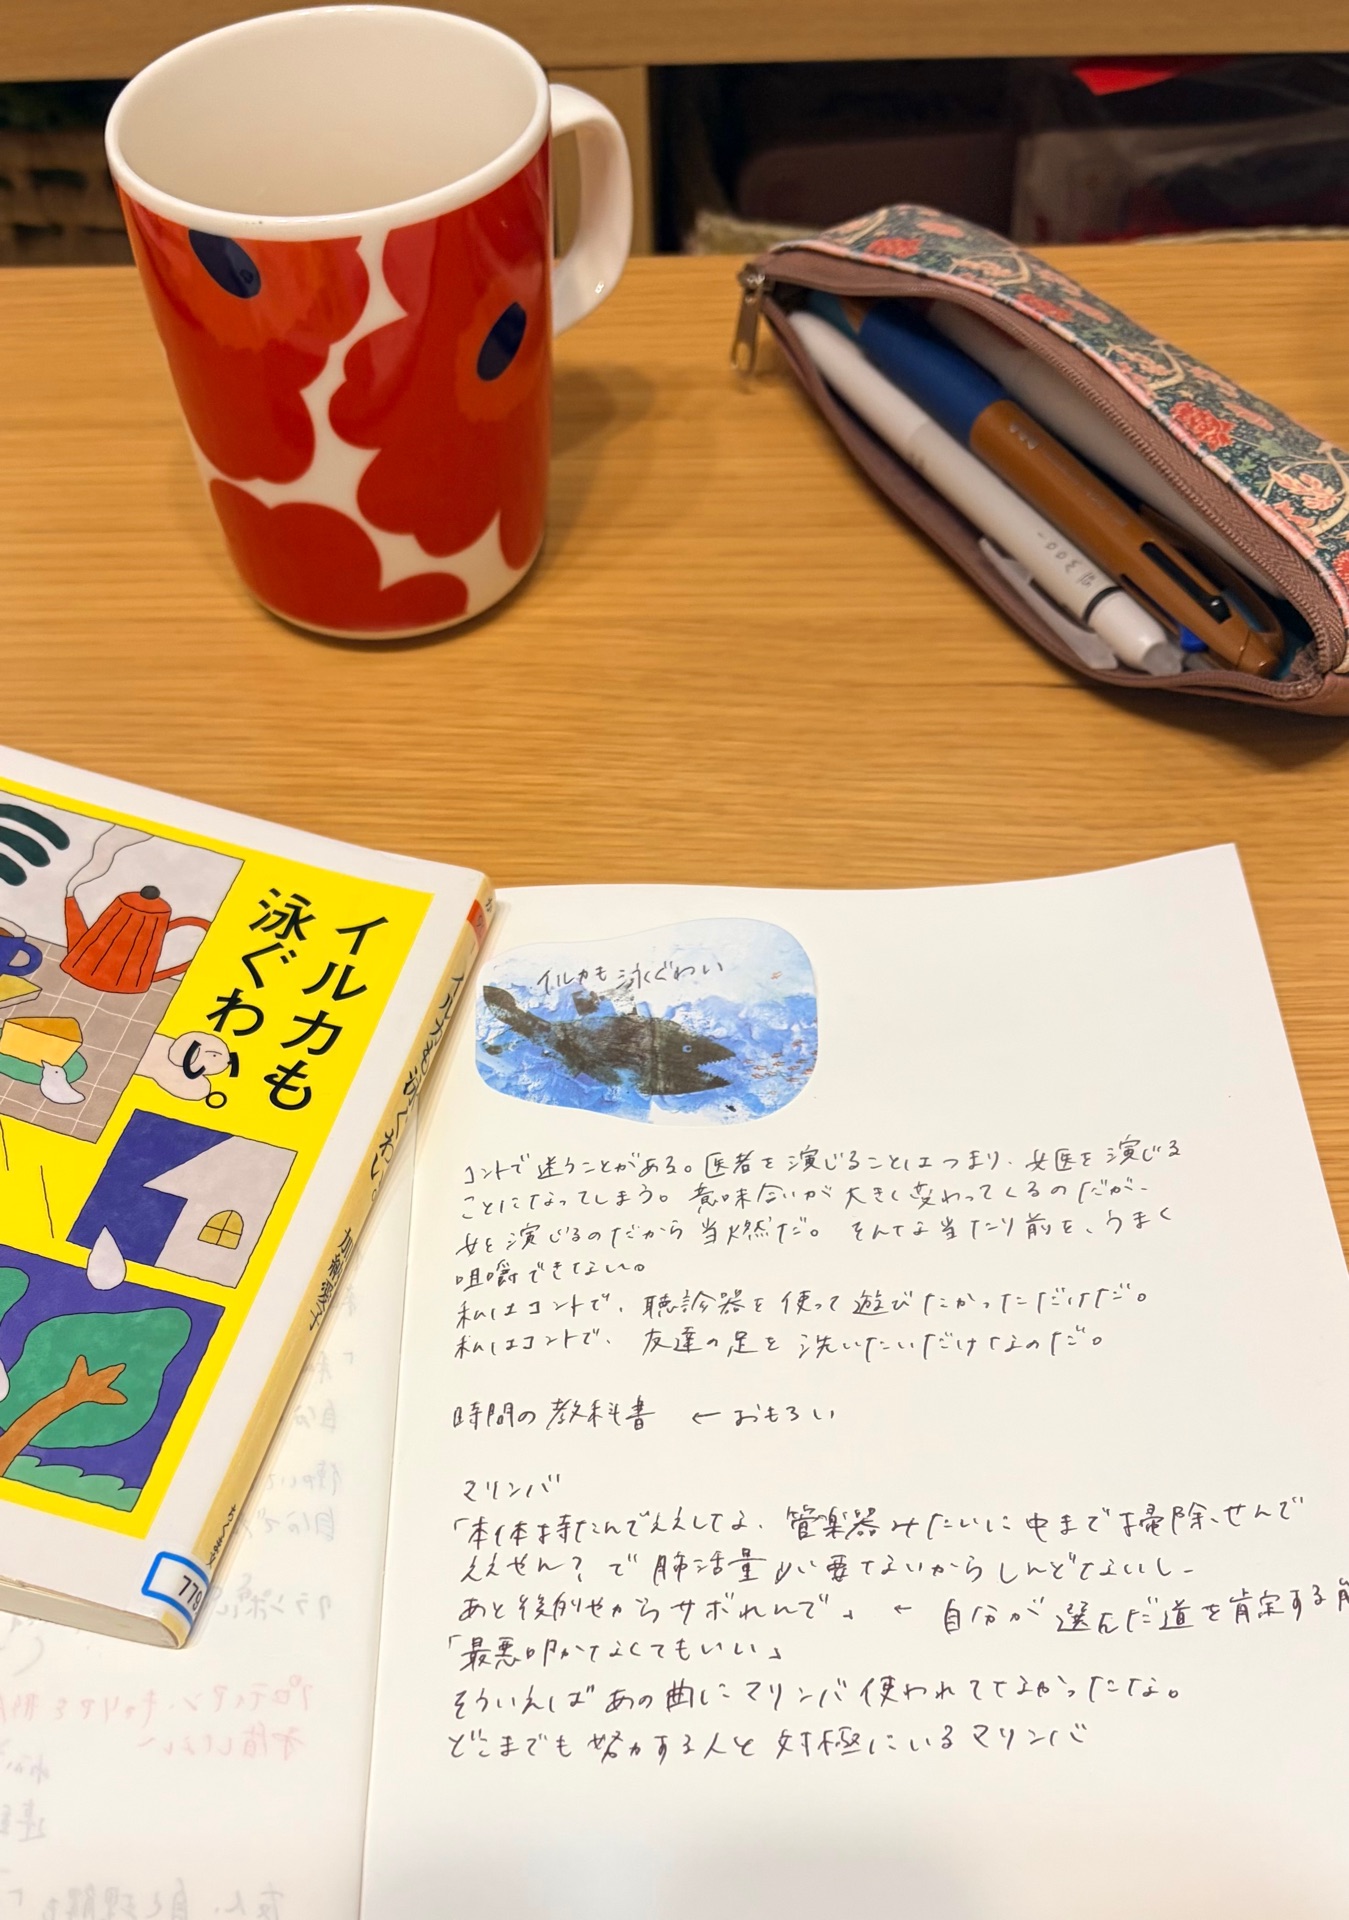 イルカも
泳ぐわい。
イルカも泳ぐわい。
加納愛子
ちくま文
779
イルカも泳ぐわい
コントで迷うことがある。医者を演じることはつまり、女医を演じる
ことになってしまう。意味合いが大きく変わってくるのだが、
女を演じるのだから当然だ。そんな当たり前を、うまく
咀嚼できない。
私はコントで、聴診器を使って遊びたかっただけだ。
私はコントで、友達の足を洗いたいだけなのだ。
時間の教科書 ←おもろい
マリンバ
「本体持たんでええしてよ、管楽器みたいに中まで掃除せんで
ええやん?で肺活量必要ないからしんどないし、
あと後列やからサボれんで」 ← 自分が選んだ道を肯定する
「最悪叩かなくてもいい」
そういえばあの曲にマリンバ使われててよかったな。
どこまでも努力する人と対極にいるマリンバ